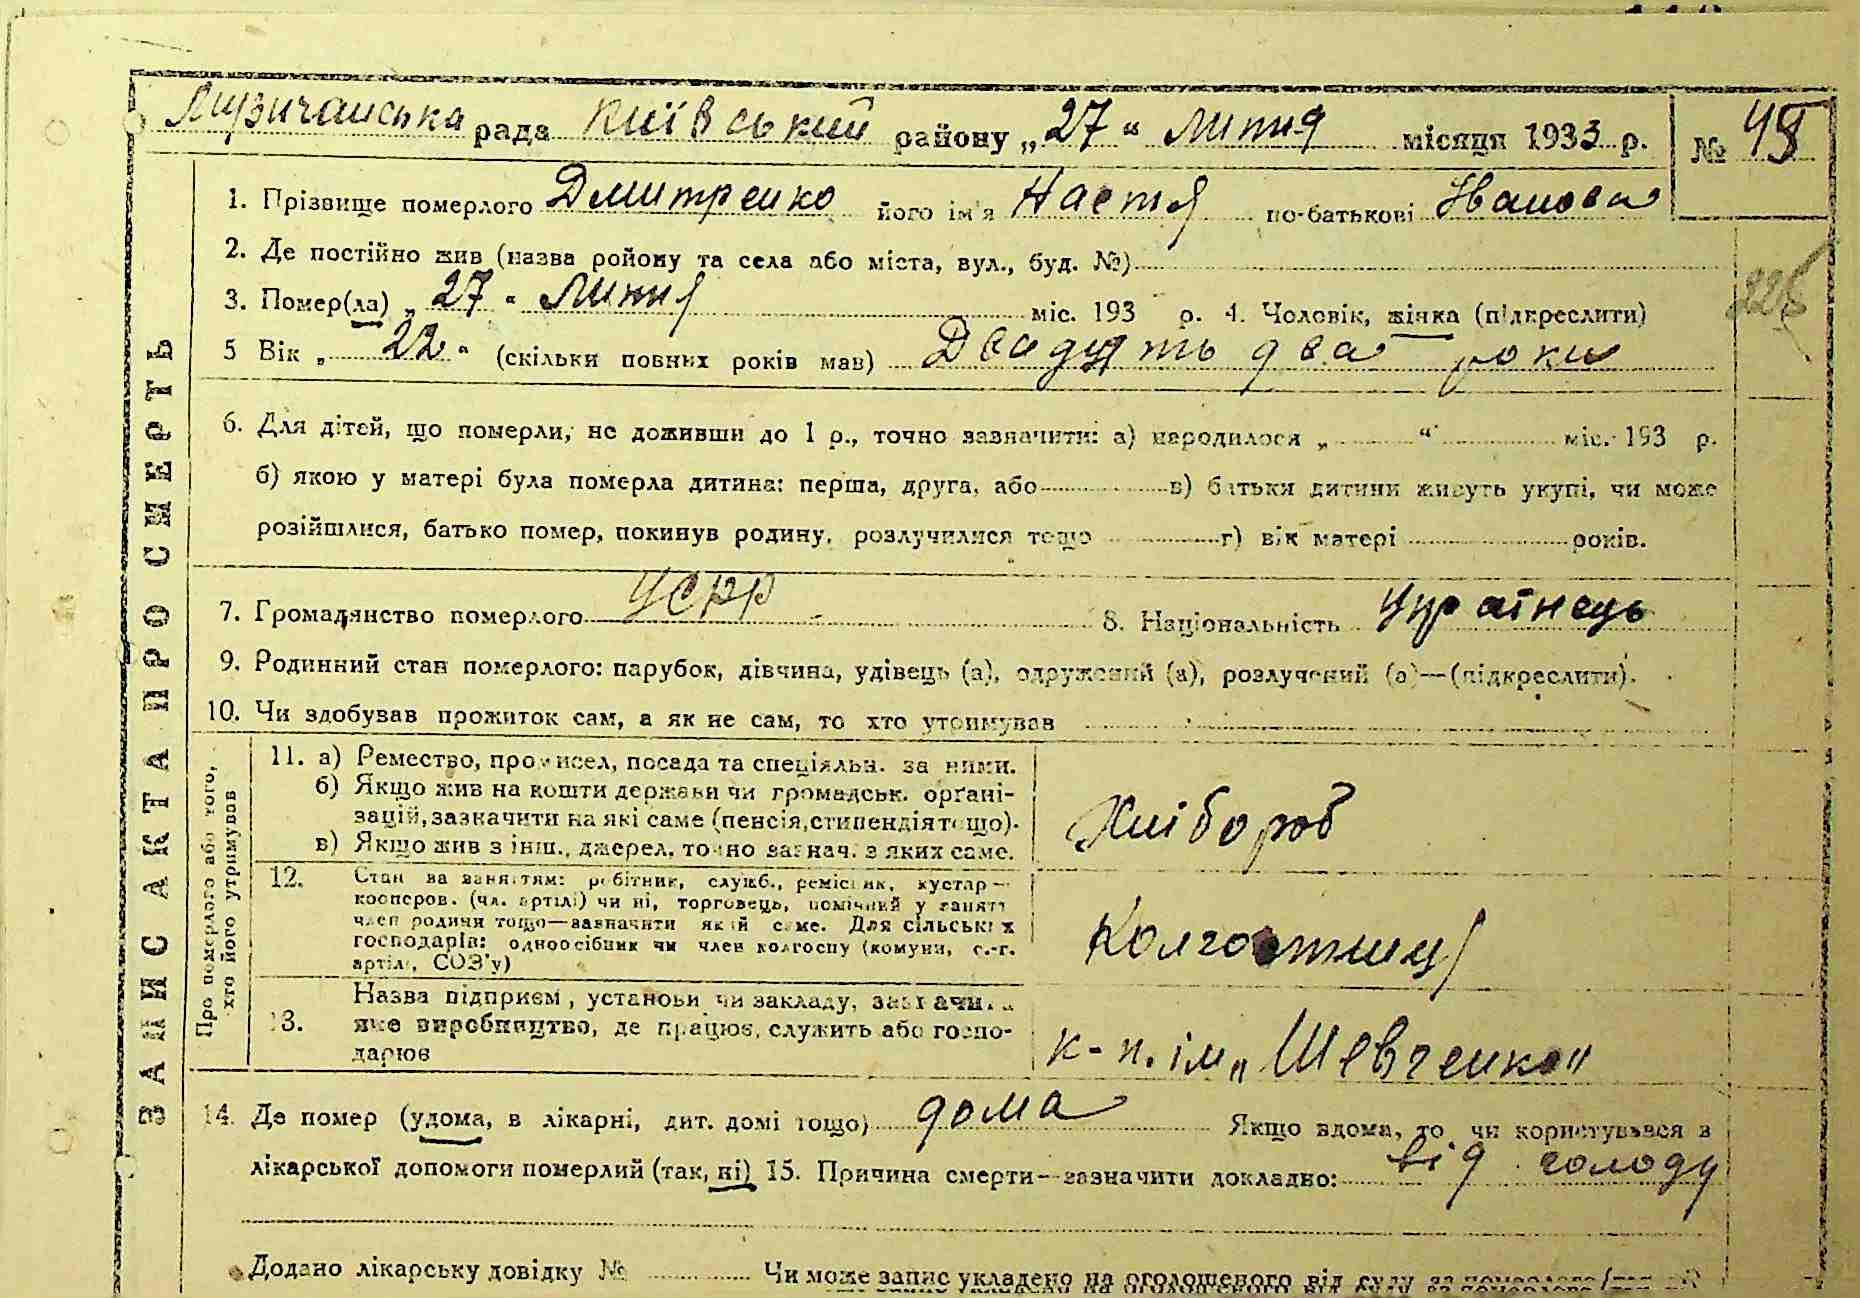 Музичанська рада Київський району „27“ Липня місяця 1933 р. № 48
1. Прізвище померлого Дмитренко його ім'я Настя по-батькові Іванова
2. Де постійно жив (назва ройону та села або міста, вул., буд. №)
226
3. Помер(ла) „27“ Липня міс. 193 р. 4. Чоловік, жінка (підкреслити)
5 Вік „22“ (скільки повних років мав) Двадцять два роки
6. Для дітей, що померли, не доживши до 1 р., точно зазначити: а) народилося „ “ міс. 193 р.
б) якою у матері була померла дитина: перша, друга, або в) батьки дитини живуть укупі, чи може
розійшлися, батько помер, покинув родину, розлучилися тощо г) вік матері років.
7. Громадянство померлого УСРР 8. Національність Українець
9. Родинний стан померлого: парубок, дівчина, удівець (а), одружений (а), розлучений (а)—(підкреслити).
10. Чи здобував прожиток сам, а як не сам, то хто утримував
11. а) Ремество, промисел, посада та спеціяльн. за ними.
б) Якщо жив на кошти держави чи громадськ. орґані-
зацій, зазначити на які саме (пенсія, стипендія тощо).
в) Якщо жив з інш., джерел, точно зазнач. з яких саме.
Хлібороб
12. Стан за заняттям: робітник, служб., ремісник, кустар—
кооперов. (чл. артілі) чи ні, торговець, помічний у занятт
член родини тощо—зазначити який саме. Для сільських
господарів: одноосібник чи член колгоспу (комуни, с.-г.
артілі, СОЗ'у)
Колгоспниця
13. Назва підприєм., установи чи закладу, зазначи.
яке виробництво, де працює, служить або госпо-
дарює
к-п. ім „Шевченко“
14. Де помер (удома, в лікарні, дит. домі тощо) дома Якщо вдома, то чи користувався з
лікарської допомоги померлий (так, ні) 15. Причина смерти—зазначити докладно: від голоду
Додано лікарську довідку № Чи може запис укладено на оголошеного від суду за померлого
ЗАПИС АКТА ПРО СМЕРТЬ
Про померлого або того,
хто його утримував